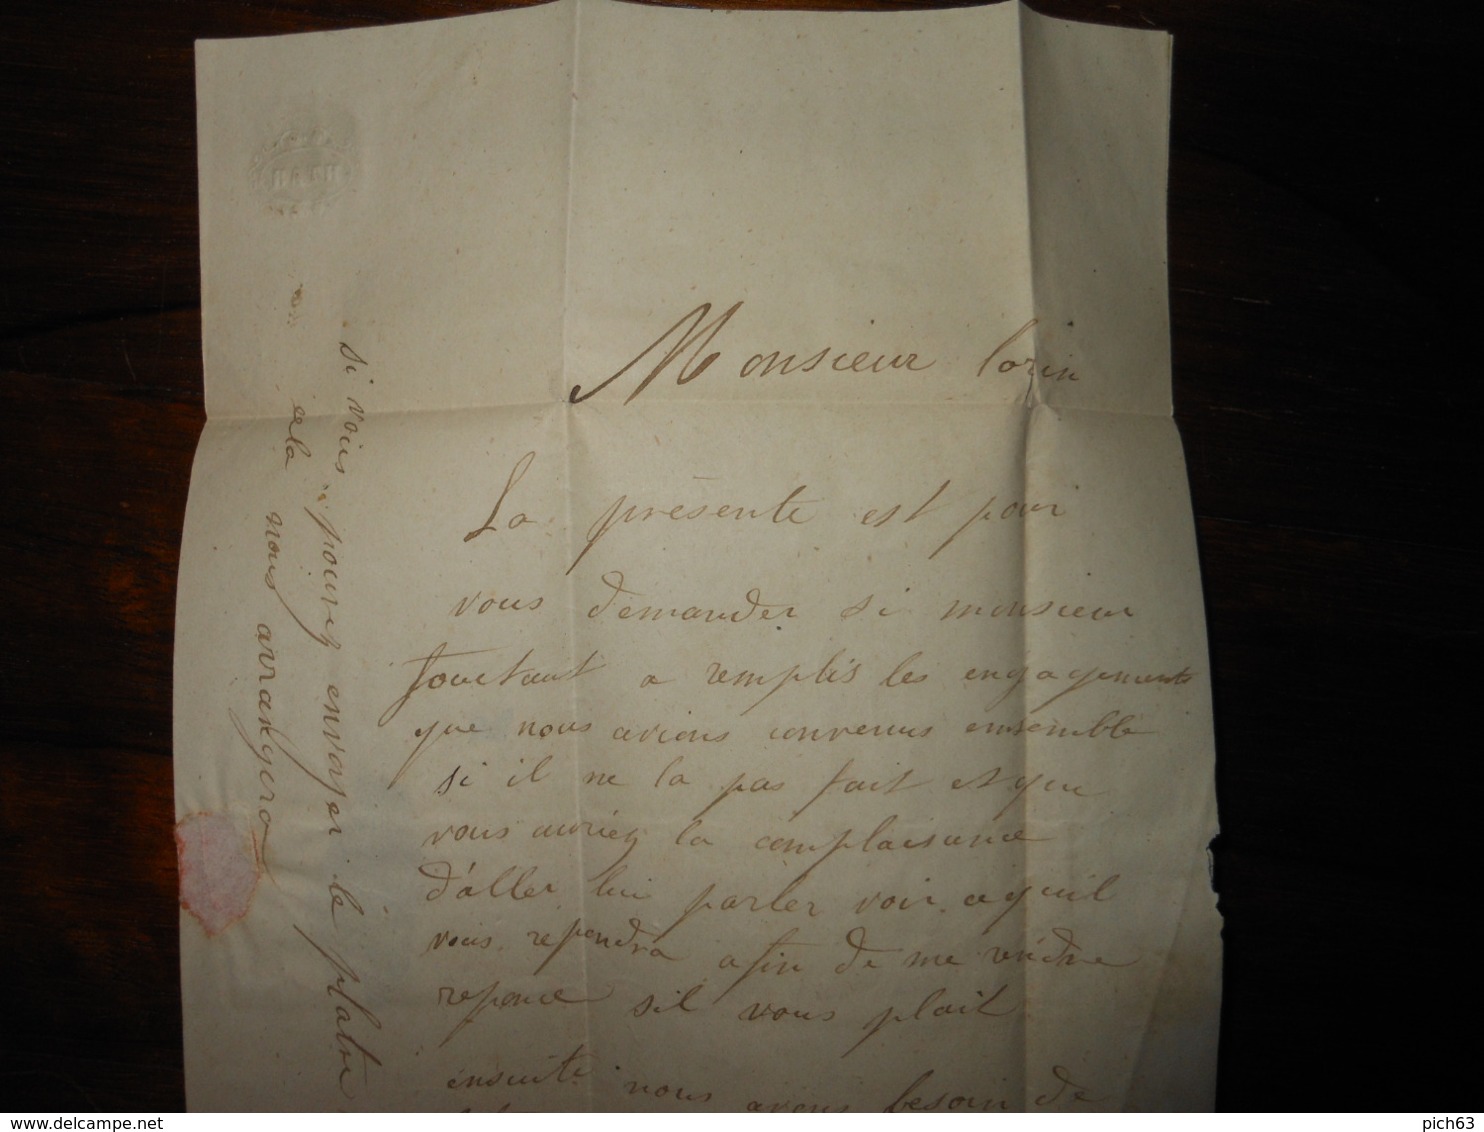 Monsieur lorin
La présente est pour
vous demander si monsieur
a remplis les engagements
que nous avions convenus ensemble
si il ne la pas fait et que
vous auriez la complaisance
d'aller lui parler voir
vous repondra afin de me rendre
reponce sil vous plait
ensuite nous avons besoin de
si vous pouvez envoyer le platre
cela nous arrangera
delcampe.net
pich63